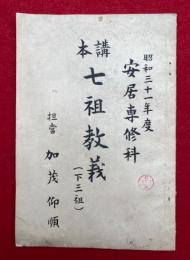 昭和三十一年度
安居専修科
講本 七祖教義
(下三祖)
担當 加茂仰順